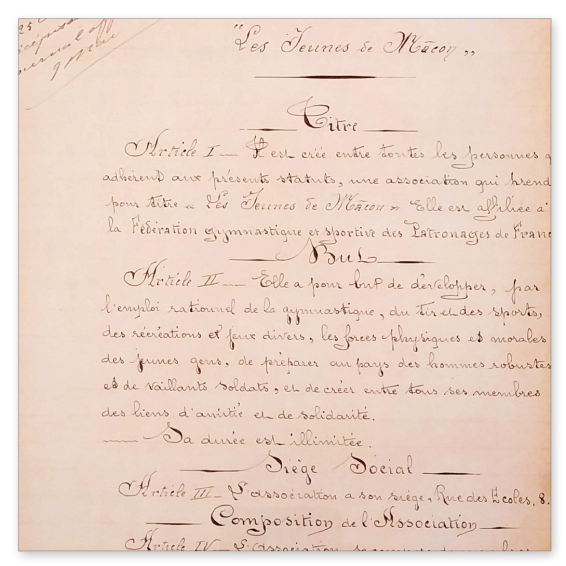 25
"Les Jeunes de Mâcon„
Titre
Article I — Il est crée entre toutes les personnes q
adhérent aux présents statuts, une association qui prend
pour titre « Les Jeunes de Mâcon » Elle est affiliée à
la Fédération gymnastique et sportive des Patronages de Franc
But
Article II — Elle a pour but de développer, par
l'emploi rationnel de la gymnastique, du tir et des sports,
des récréations et jeux divers, les forces physiques et morales
des jeunes gens, de préparer au pays des hommes robustes
et de vaillants soldats, et de créer entre tous ses membres
des liens d'amitié et de solidarité.
— Sa durée est illimitée.
Siège Social
Article III — L'association a son siège, Rue des Ecoles, 8.
Composition de l'Association
Article IV — L'association se compose